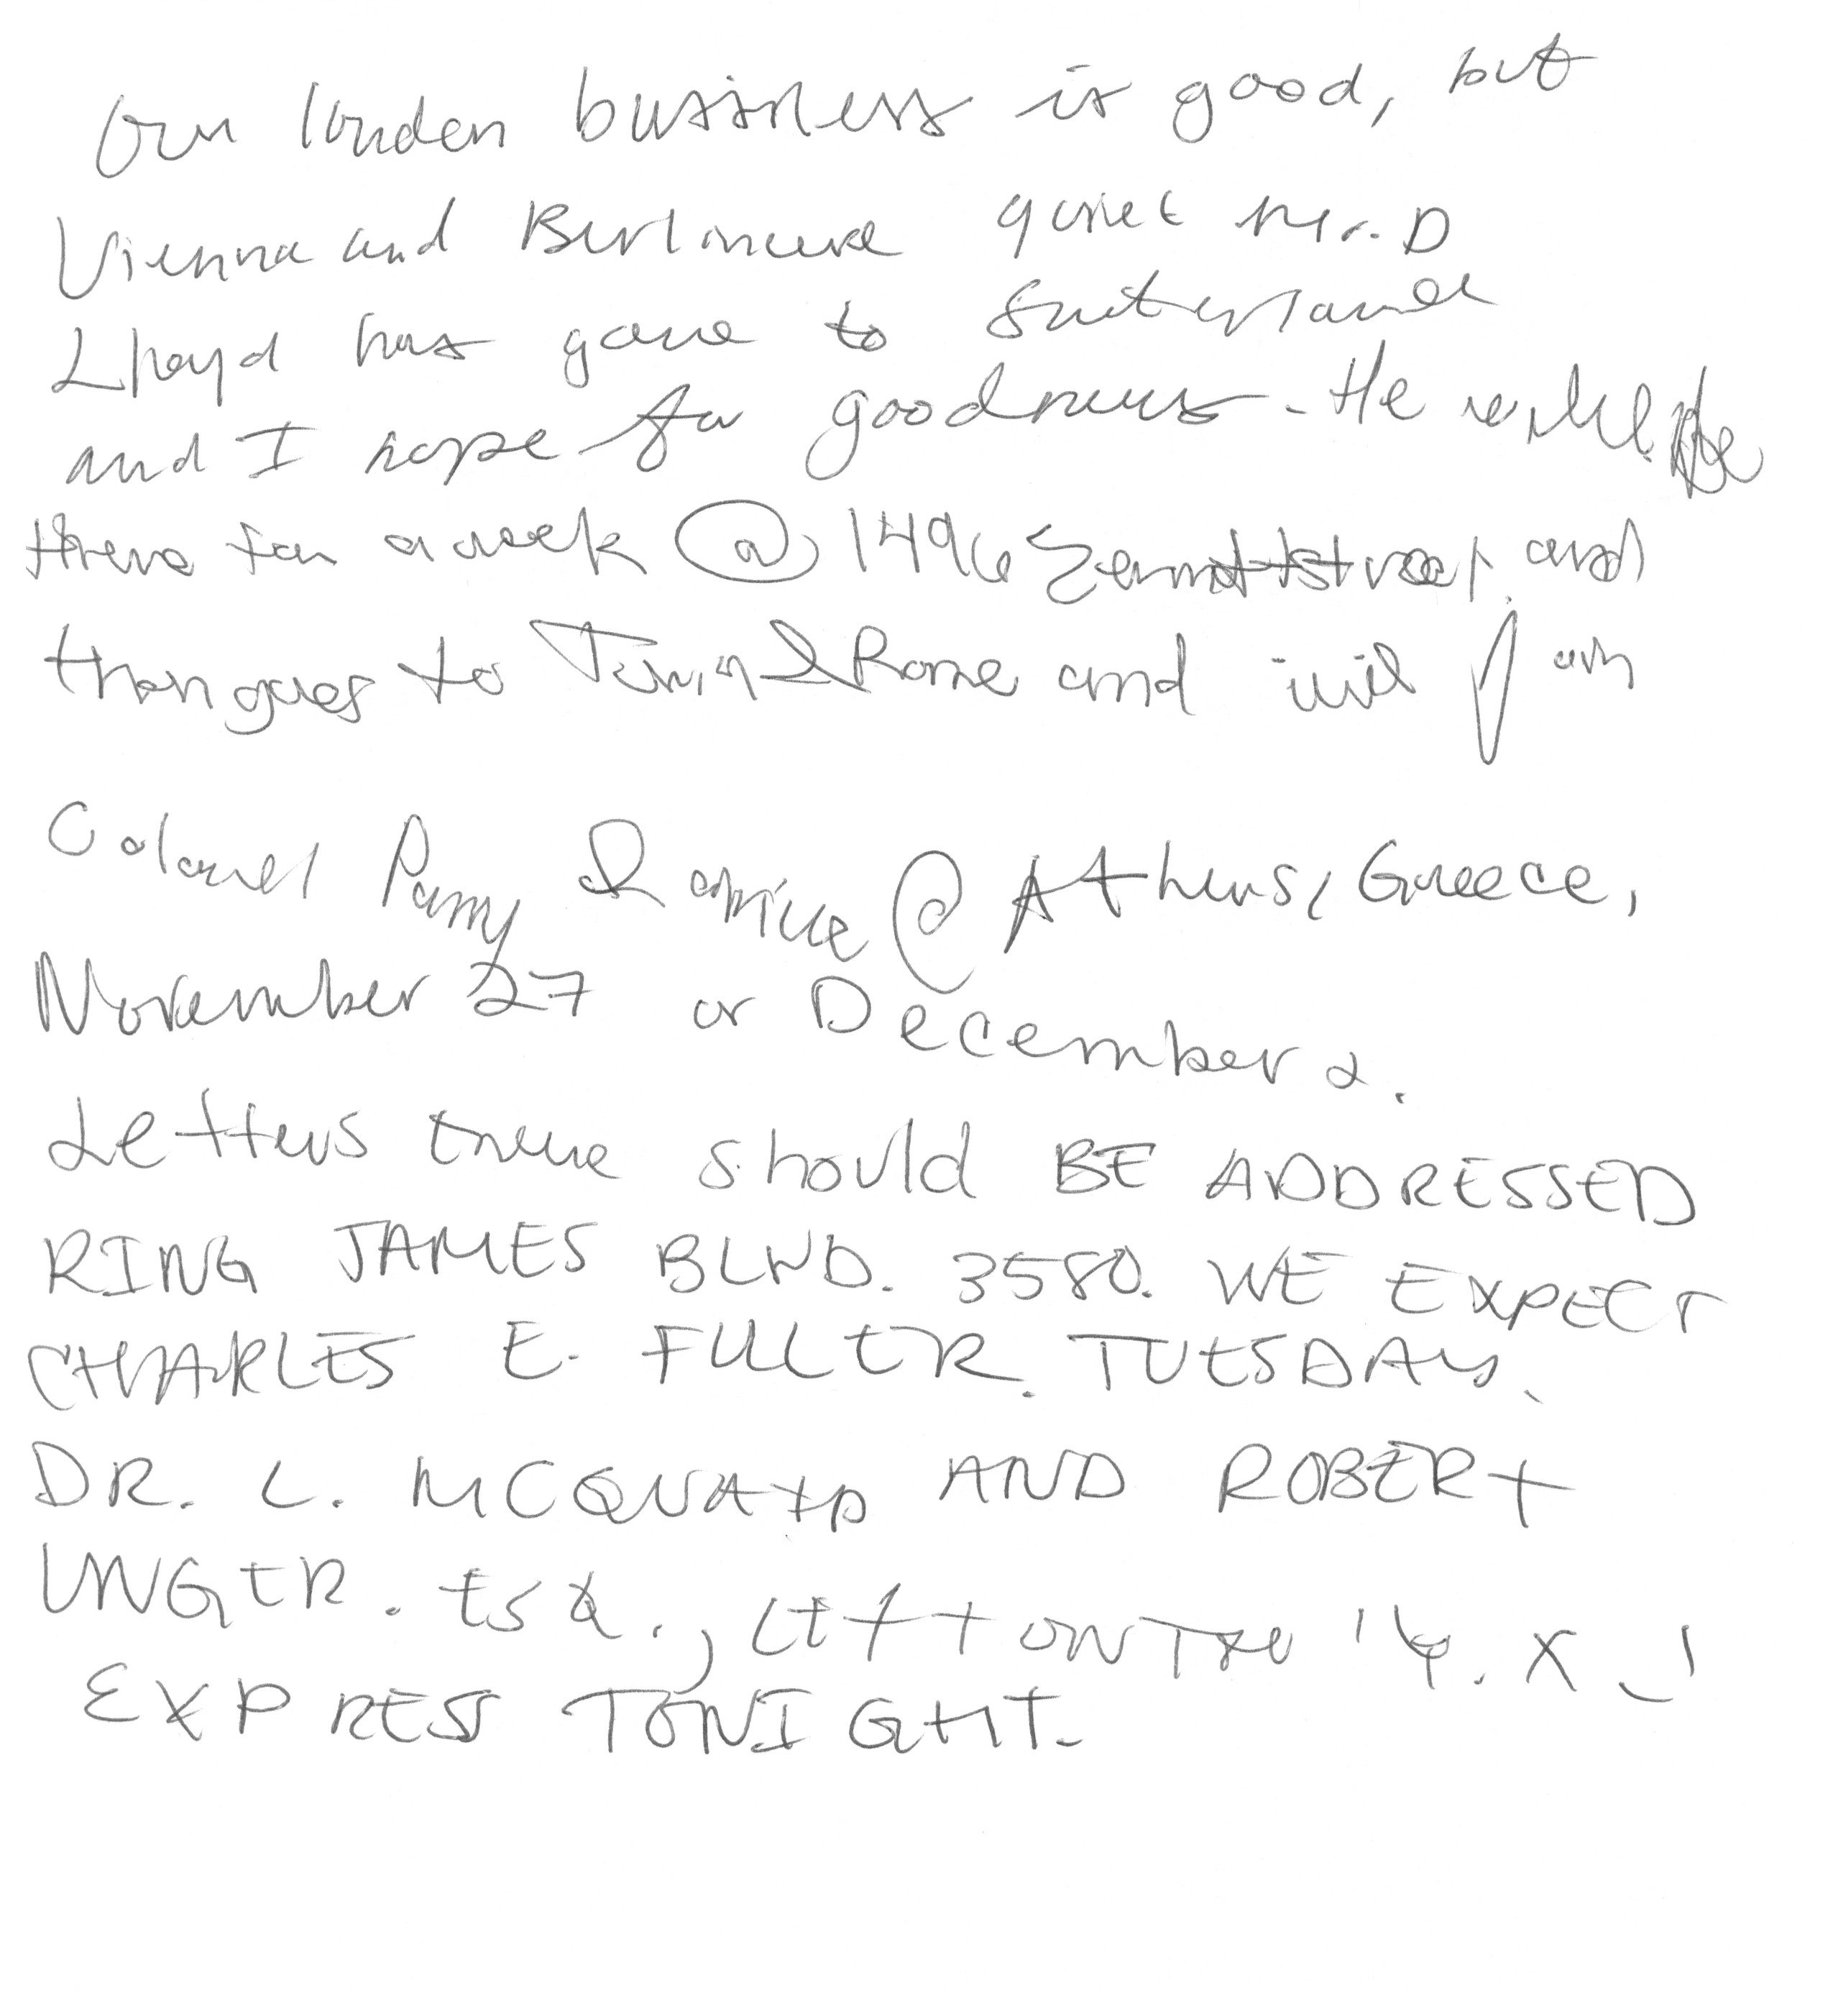 Our london business is good, but
Vienna and Berlin are quiet Mr. D
Lloyd has gone to Switerland
and I hope for goodnews. He will be
there for a week @ 1496 Zermott street, and
then goes to Turin & Rome and will join
Colonel Parry & arrive @ Athens, Greece,
November 27 or December 2.
Letters there should BE ADDRESSED
RING JAMES BLVD. 3580. WE EXPECT
CHARLES E. FULLER. TUESDAY.
DR. L. MCQUAID AND ROBERT
UNGER. ESQ., LEFT ON THE 'Y. X.'
EXPRESS TONIGHT.